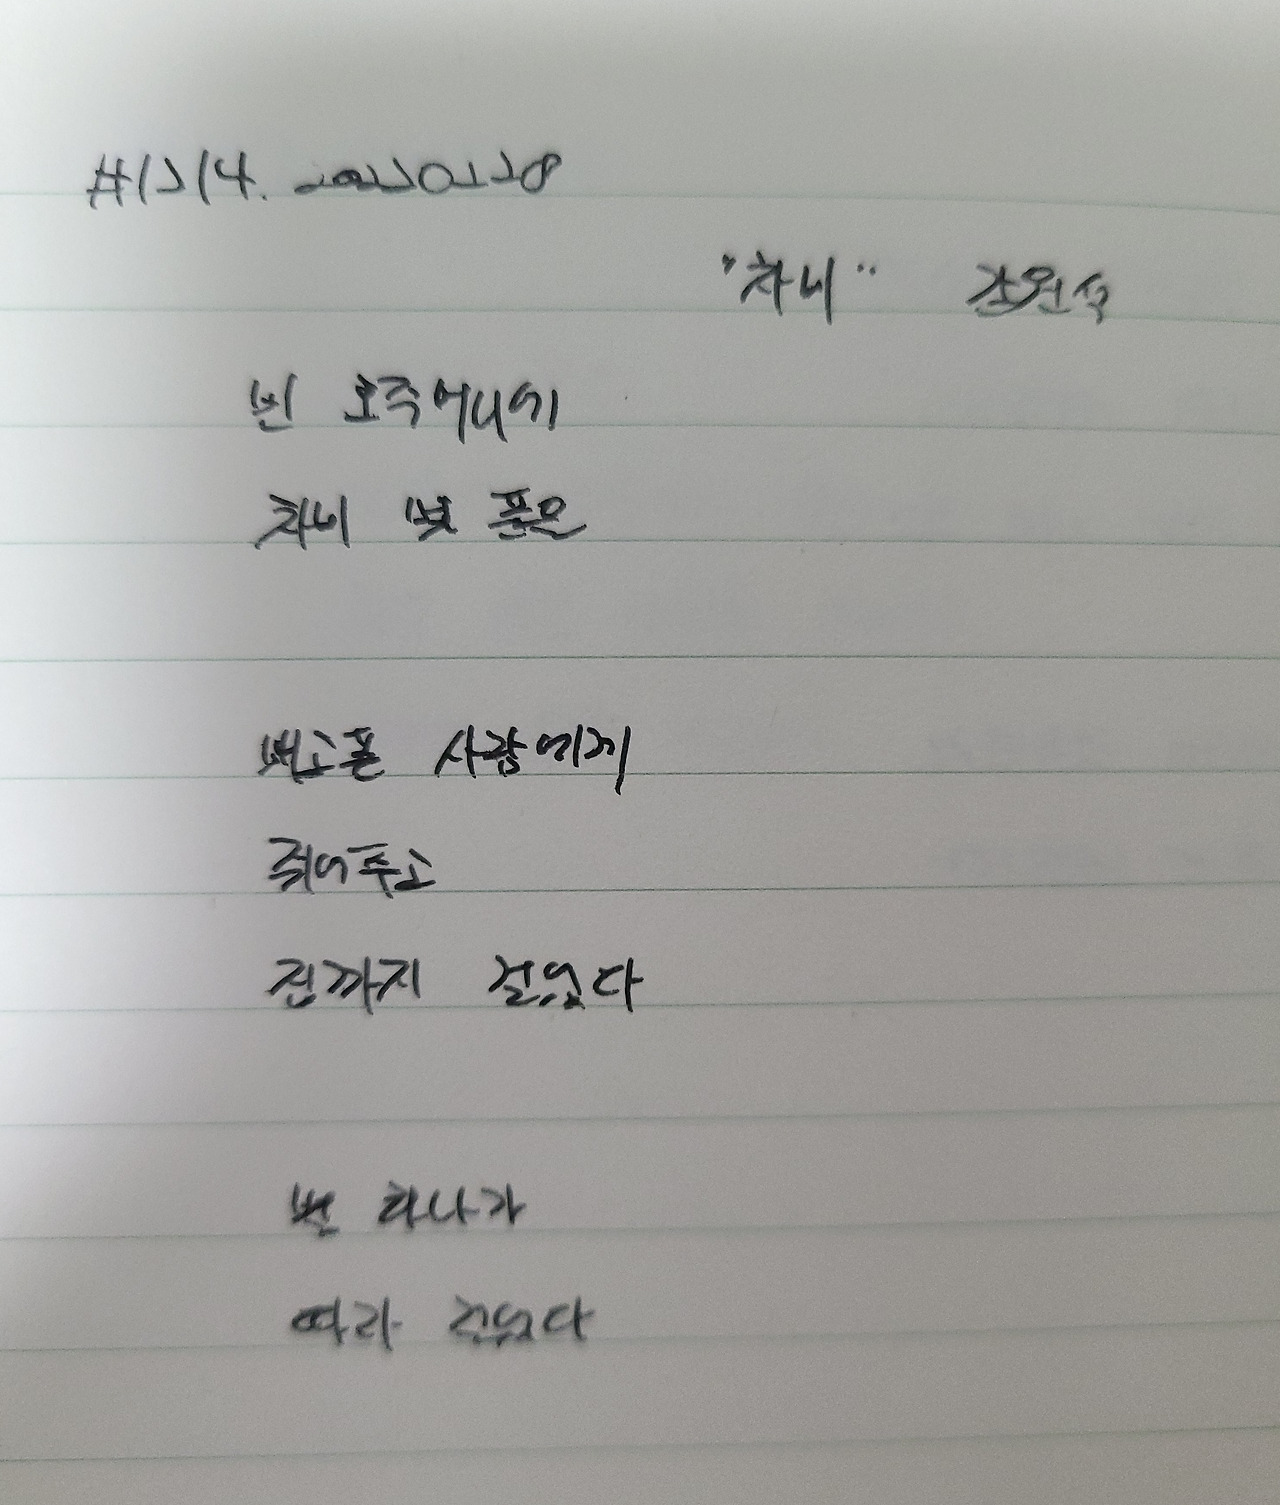 #1314. 20230228
"차비" 강원석
빈 호주머니에
차비 몇 푼은
배고픈 사람에게
쥐어주고
집까지 걸었다
별 하나가
따라 걸었다